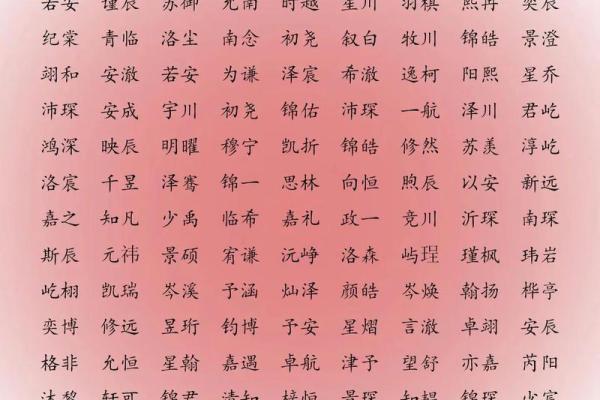 若安 瑾辰 苏御 允南 时越 星川 羽祺 熙冉 奕辰
纪棠 青临 洛尘 南念 初尧 叙白 牧川 锦皓 景澄
翊和 安澈 若安 为谦 泽宸 希澈 逸柯 阳熙 星乔
沛琛 安成 宇川 初尧 锦佑 沛琛 一航 泽川 君屹
鸿深 映辰 明曜 穆宁 凯折 锦皓 修然 苏羡 淳屹
洛宸 千昱 泽骞 锦一 思林 向恒 煦辰 以安 新远
嘉之 知凡 少禹 临希 嘉礼 政一 竞川 沂琛 南琛
斯辰 元祎 景硕 宥谦 沅峥 洛森 屿珵 瑾枫 玮岩
屹栩 凯瑞 岑溪 予涵 灿泽 颜皓 岑焕 翰扬 桦亭
奕博 修远 昱珩 钧博 予安 星熠 言澈 卓翊 安辰
格非 允恒 星翰 嘉遇 卓航 津予 望舒 亦嘉 芮阳
沐黎 轩可 锦君 清和 梓恒 景琛 知楊 锦琛 少宸